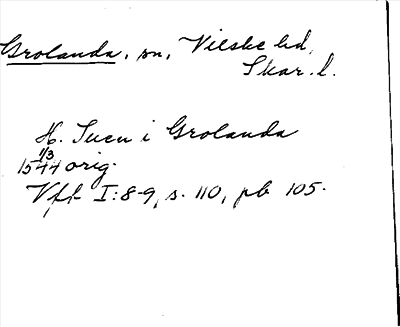 Grolanda, sn, Vilske hd,
Skar. l.
H. Suen i Grolanda
1/3
1544 orig.
Vff I:8-9, s. 110, pb 105.